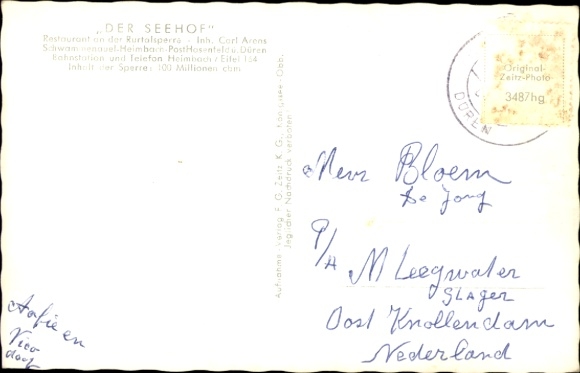 „DER SEEHOF"
Restaurant an der Rurtalsperre - Inh. Carl Arens
Schwammenauel-Heimbach-Post Hasenfeld ü. Düren
Bahnstation und Telefon Heimbach / Eifel 134
Inhalt der Sperre: 100 Millionen cbm
Aufnahme u. Verlag F. G. Zeitz K. G., Königsee-Obn.
Jeglicher Nachdruck verboten
DÜREN
Original-
Zeitz-Photo
3487hg
Mevr Bloem
De Jong
P/A
M Leegwater
SLAGER
Oost Knollendam
Nederland
Aafie en